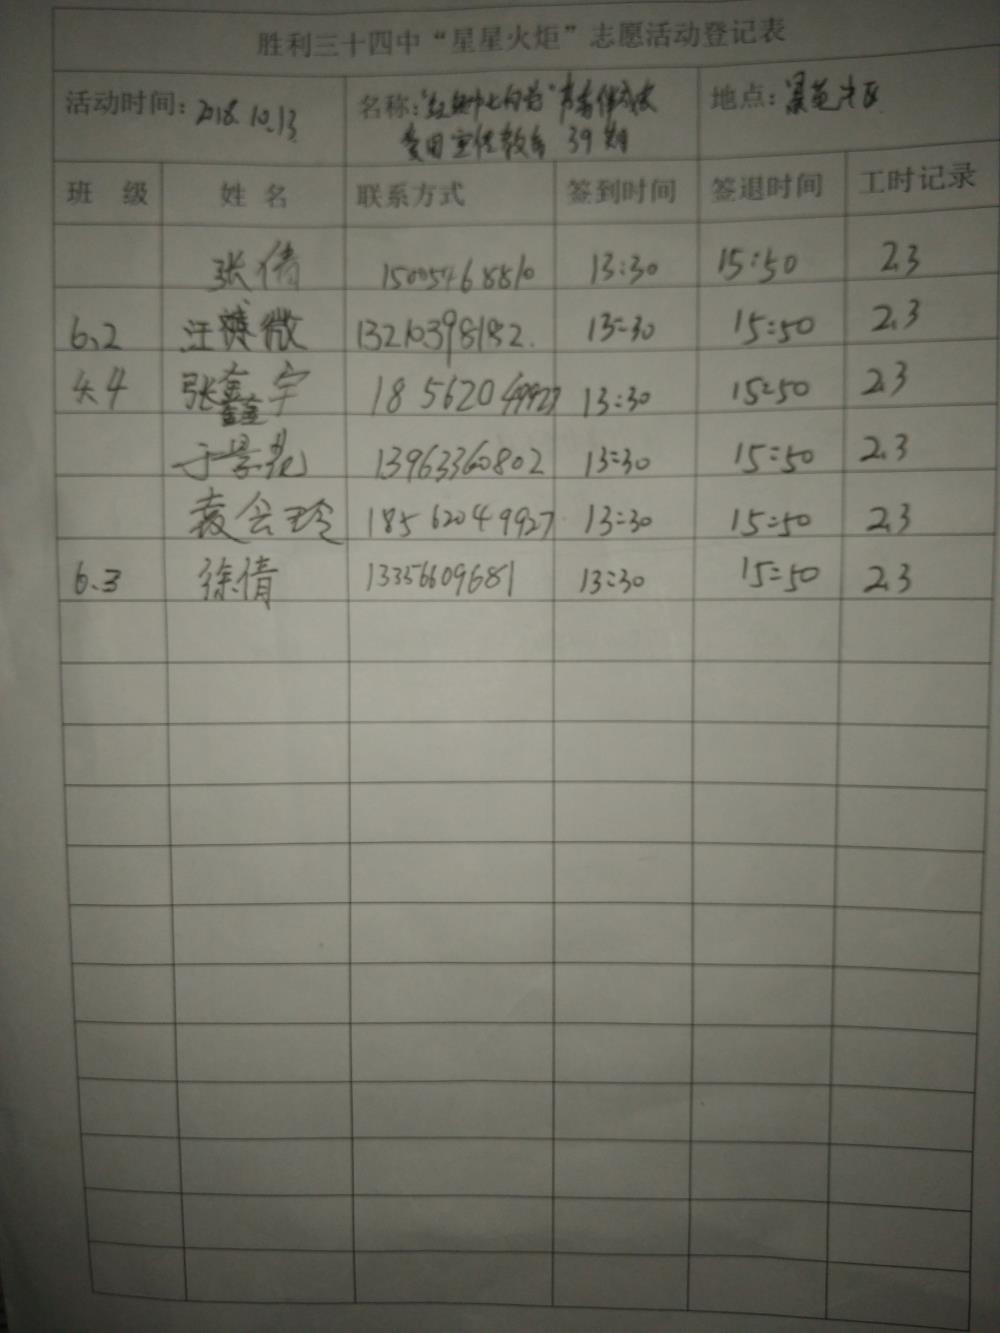 胜利三十四中“星星火炬”志愿活动登记表
活动时间: 2018.10.13 名称: 地点:
宣传教育 39期
班 级 姓 名 联系方式 签到时间 签退时间 工时记录
张倩 15005468810 13:30 15:50 2.3
6.2 汪 微 13210398182. 13:30 15:50 2.3
4 张鑫宇 18562049927 13:30 15:50 2.3
于景苑 13963360802 13:30 15:50 2.3
袁会玲 18562049927 13:30 15:50 2.3
6.3 徐倩 13356609681 13:30 15:50 2.3